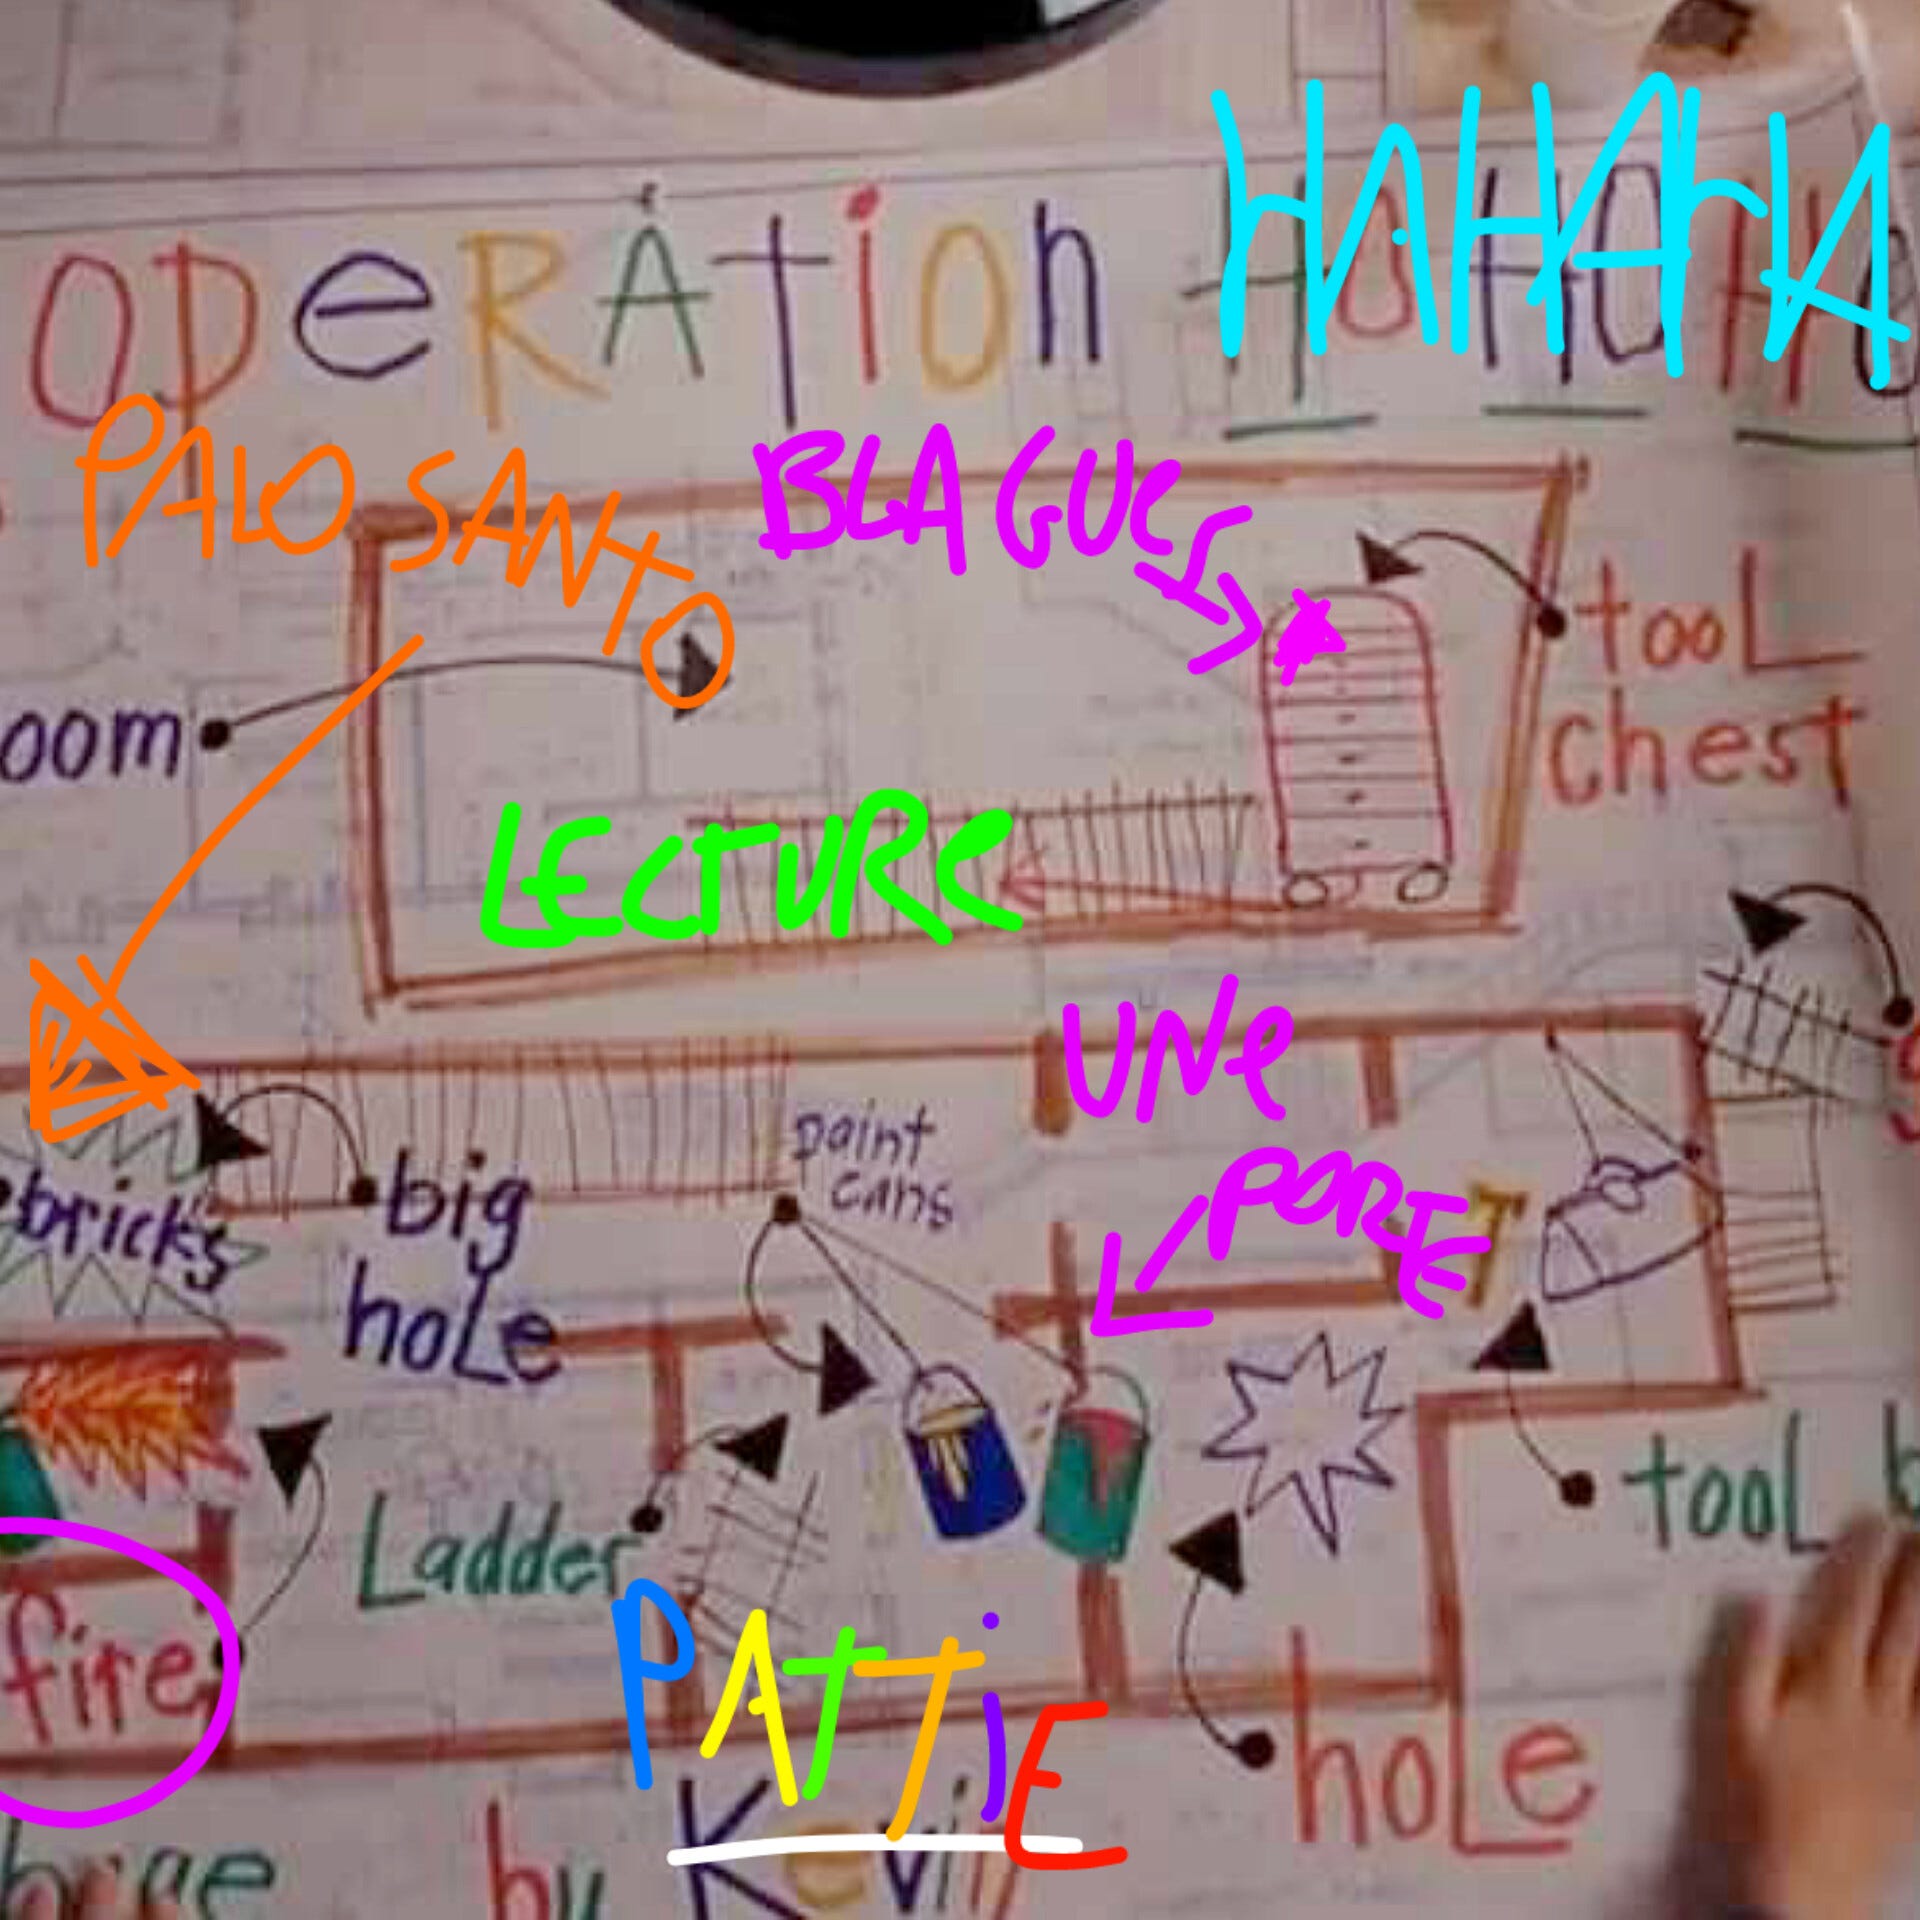 HAHAHA
OpeRAtion Ho Ho Ho
PALO SANTO
BLAGUES
tooL
chest
oom
LECTURE
UNe
PORTE
paint
cans
bricks
big
hoLe
Ladder
tooL b
fire
PATTiE
hoLe
by Kevin